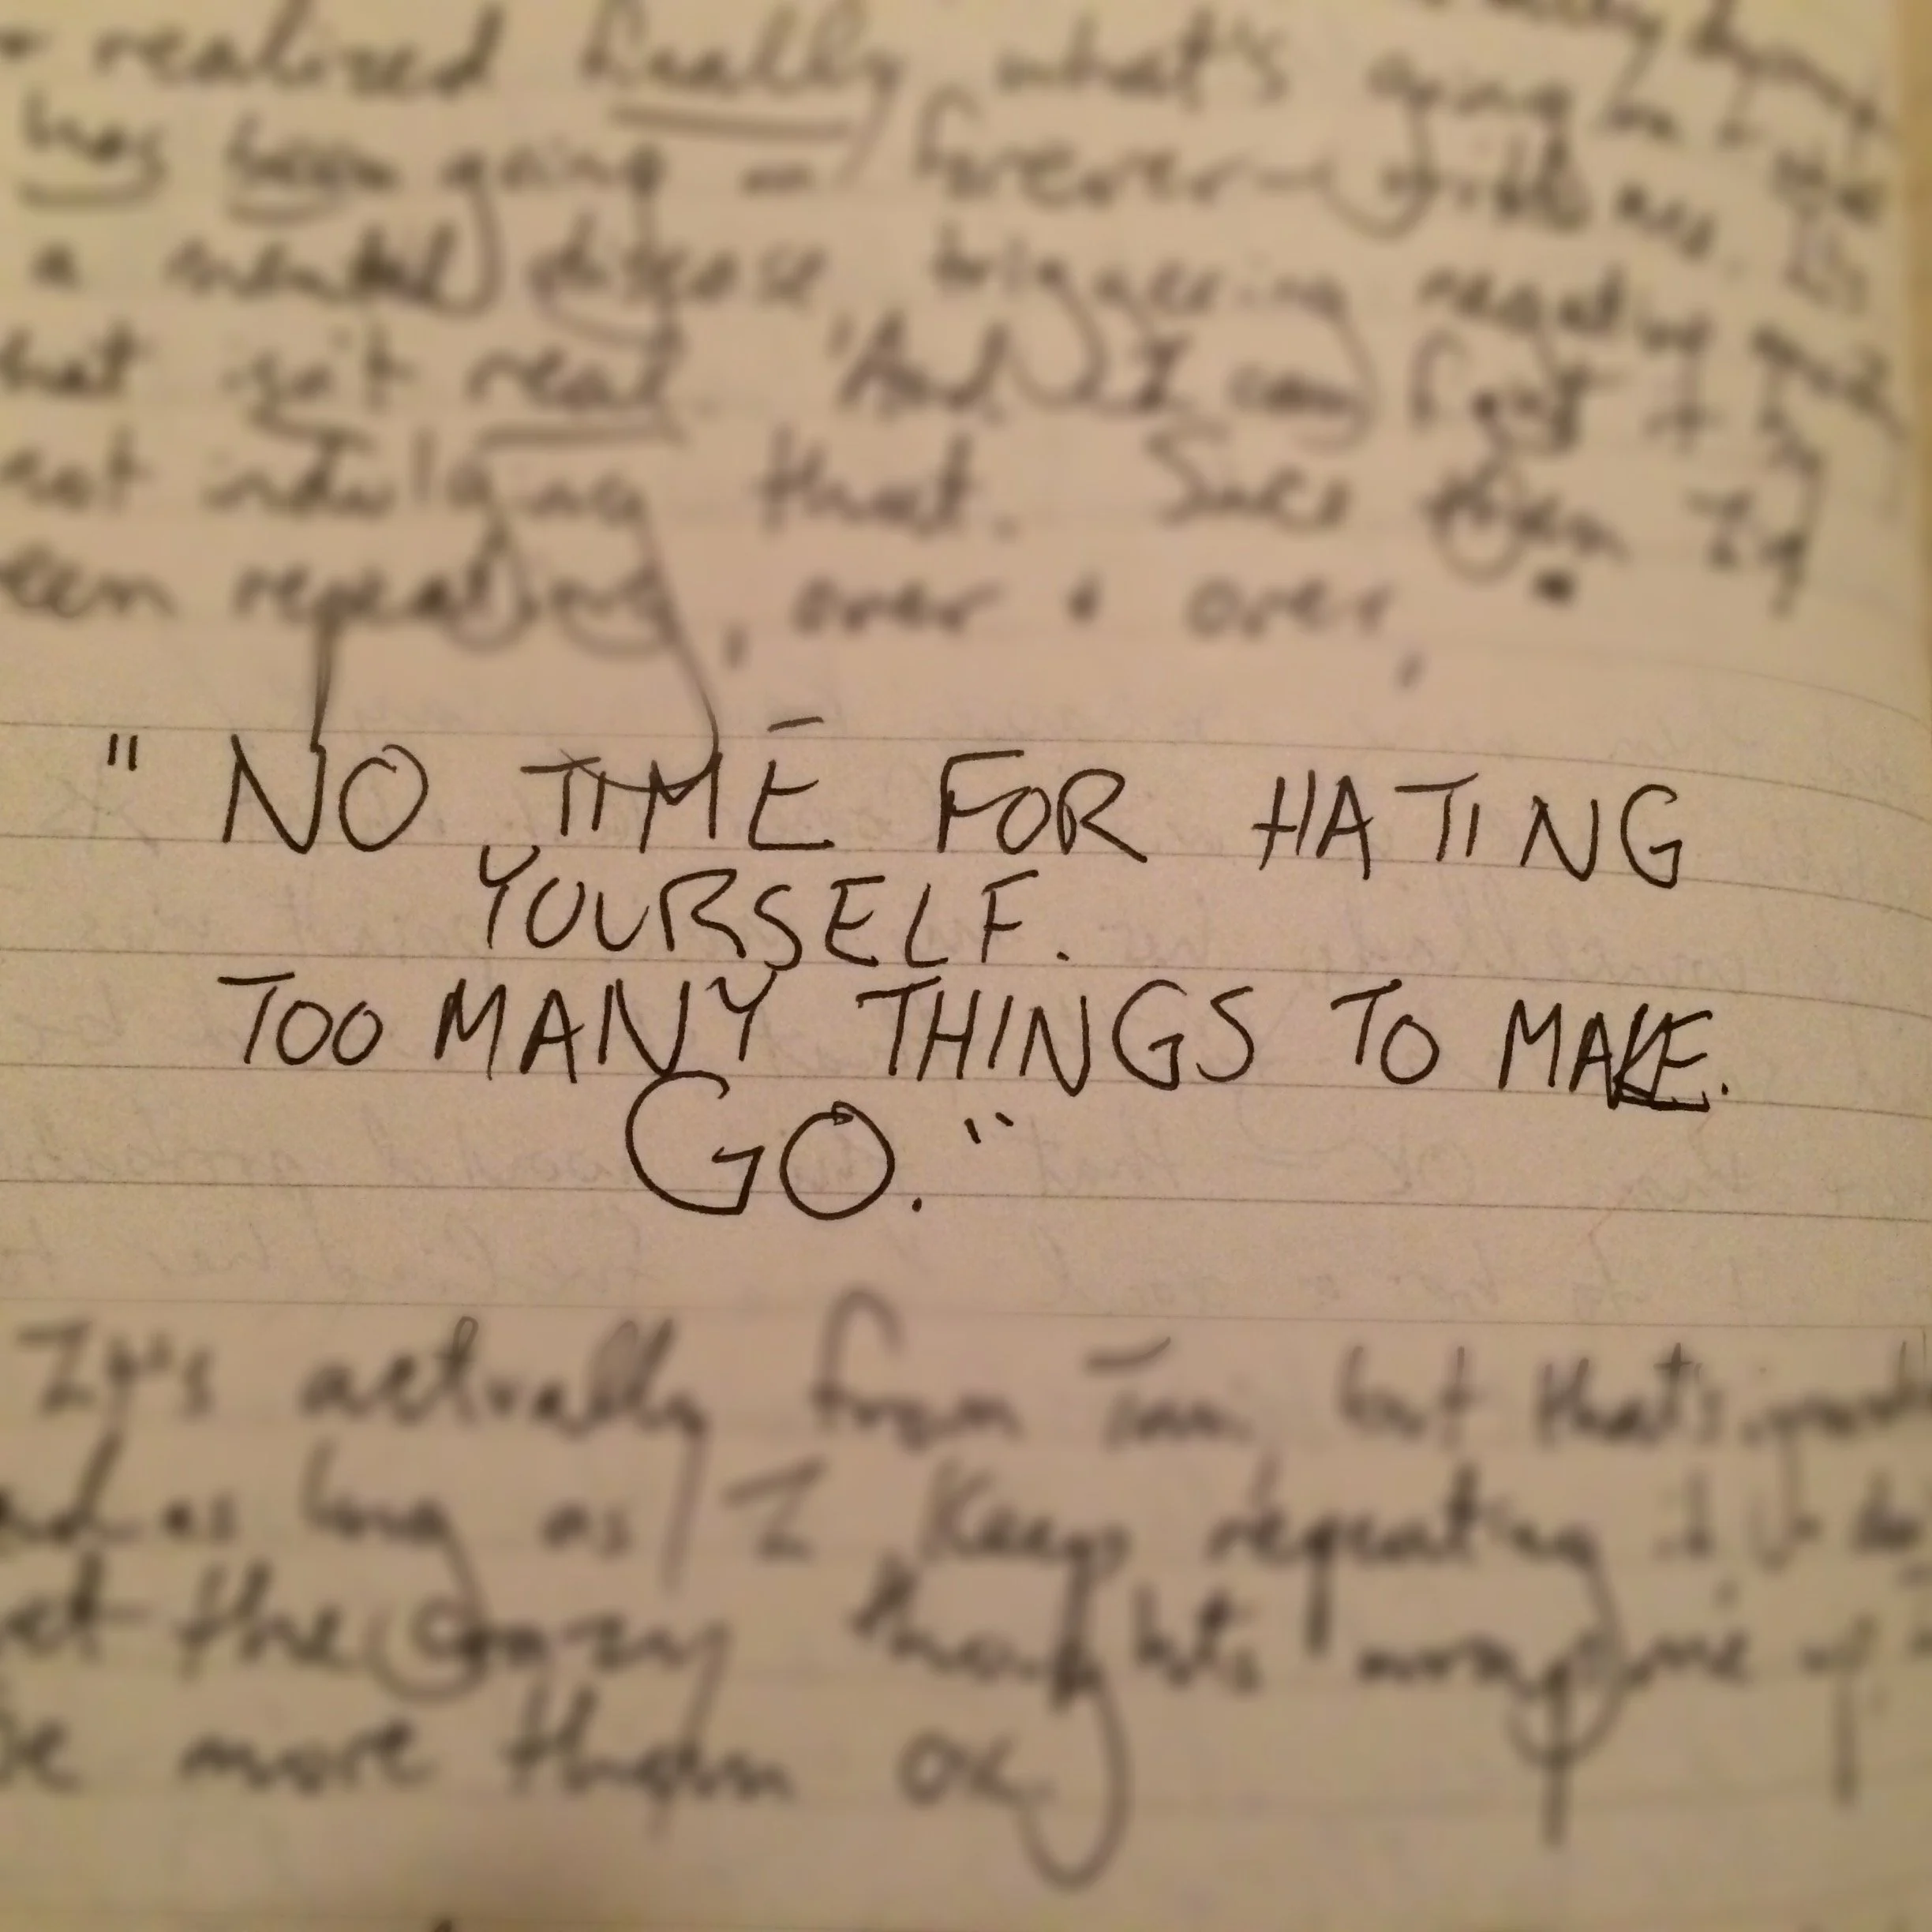 realized finally what's going on
has been going on forever with me.
a mental disease triggering negative
that isn't real. And I can fight it by
not indulging that. Since then I'd
been repeating, over & over,
" NO TIME FOR HATING
YOURSELF.
TOO MANY THINGS TO MAKE.
GO."
It's actually from Tim, but that's
as long as I keep repeating it
the crazy thoughts wrap me up
be more than ok